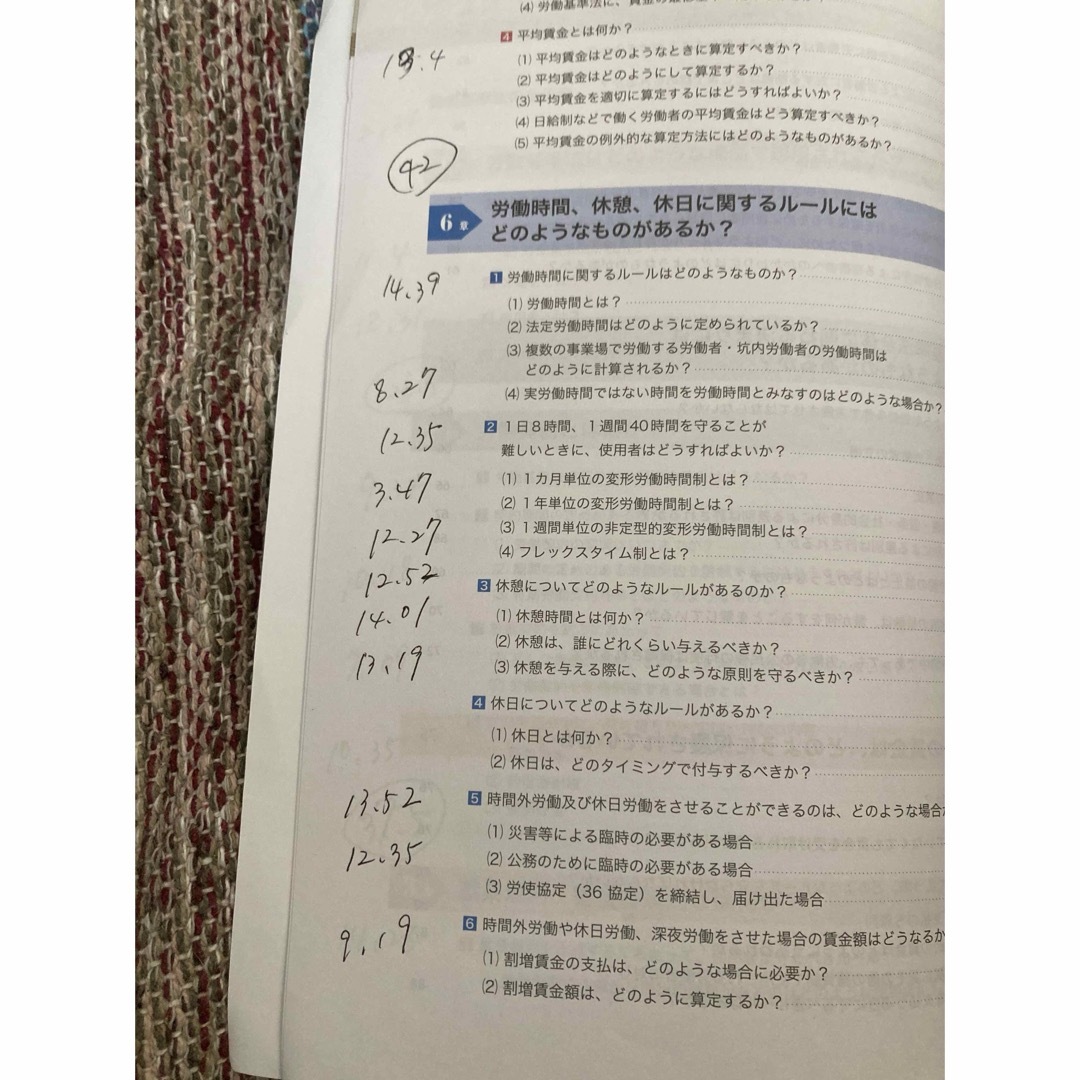 (4) 労働基準法に、
4 平均賃金とは何か？
(1) 平均賃金はどのようなときに算定すべきか？
(2) 平均賃金はどのようにして算定するか？
(3) 平均賃金を適切に算定するにはどうすればよいか？
(4) 日給制などで働く労働者の平均賃金はどう算定すべきか？
(5) 平均賃金の例外的な算定方法にはどのようなものがあるか？
42
6章 労働時間、休憩、休日に関するルールには
どのようなものがあるか？
14.39
1 労働時間に関するルールはどのようなものか？
(1) 労働時間とは？
(2) 法定労働時間はどのように定められているか？
(3) 複数の事業場で労働する労働者・坑内労働者の労働時間は
どのように計算されるか？
8.27
(4) 実労働時間ではない時間を労働時間とみなすのはどのような場合か？
12.35
2 1日8時間、1週間40時間を守ることが
難しいときに、使用者はどうすればよいか？
3.47
(1) 1カ月単位の変形労働時間制とは？
(2) 1年単位の変形労働時間制とは？
12.27
(3) 1週間単位の非定型的変形労働時間制とは？
(4) フレックスタイム制とは？
12.52
3 休憩についてどのようなルールがあるのか？
14.01
(1) 休憩時間とは何か？
(2) 休憩は、誰にどれくらい与えるべきか？
13.19
(3) 休憩を与える際に、どのような原則を守るべきか？
4 休日についてどのようなルールがあるか？
(1) 休日とは何か？
(2) 休日は、どのタイミングで付与するべきか？
13.52
5 時間外労働及び休日労働をさせることができるのは、どのような場合
(1) 災害等による臨時の必要がある場合
12.35
(2) 公務のために臨時の必要がある場合
(3) 労使協定（36協定）を締結し、届け出た場合
9.19
6 時間外労働や休日労働、深夜労働をさせた場合の賃金額はどうなるか
(1) 割増賃金の支払は、どのような場合に必要か？
(2) 割増賃金額は、どのように算定するか？